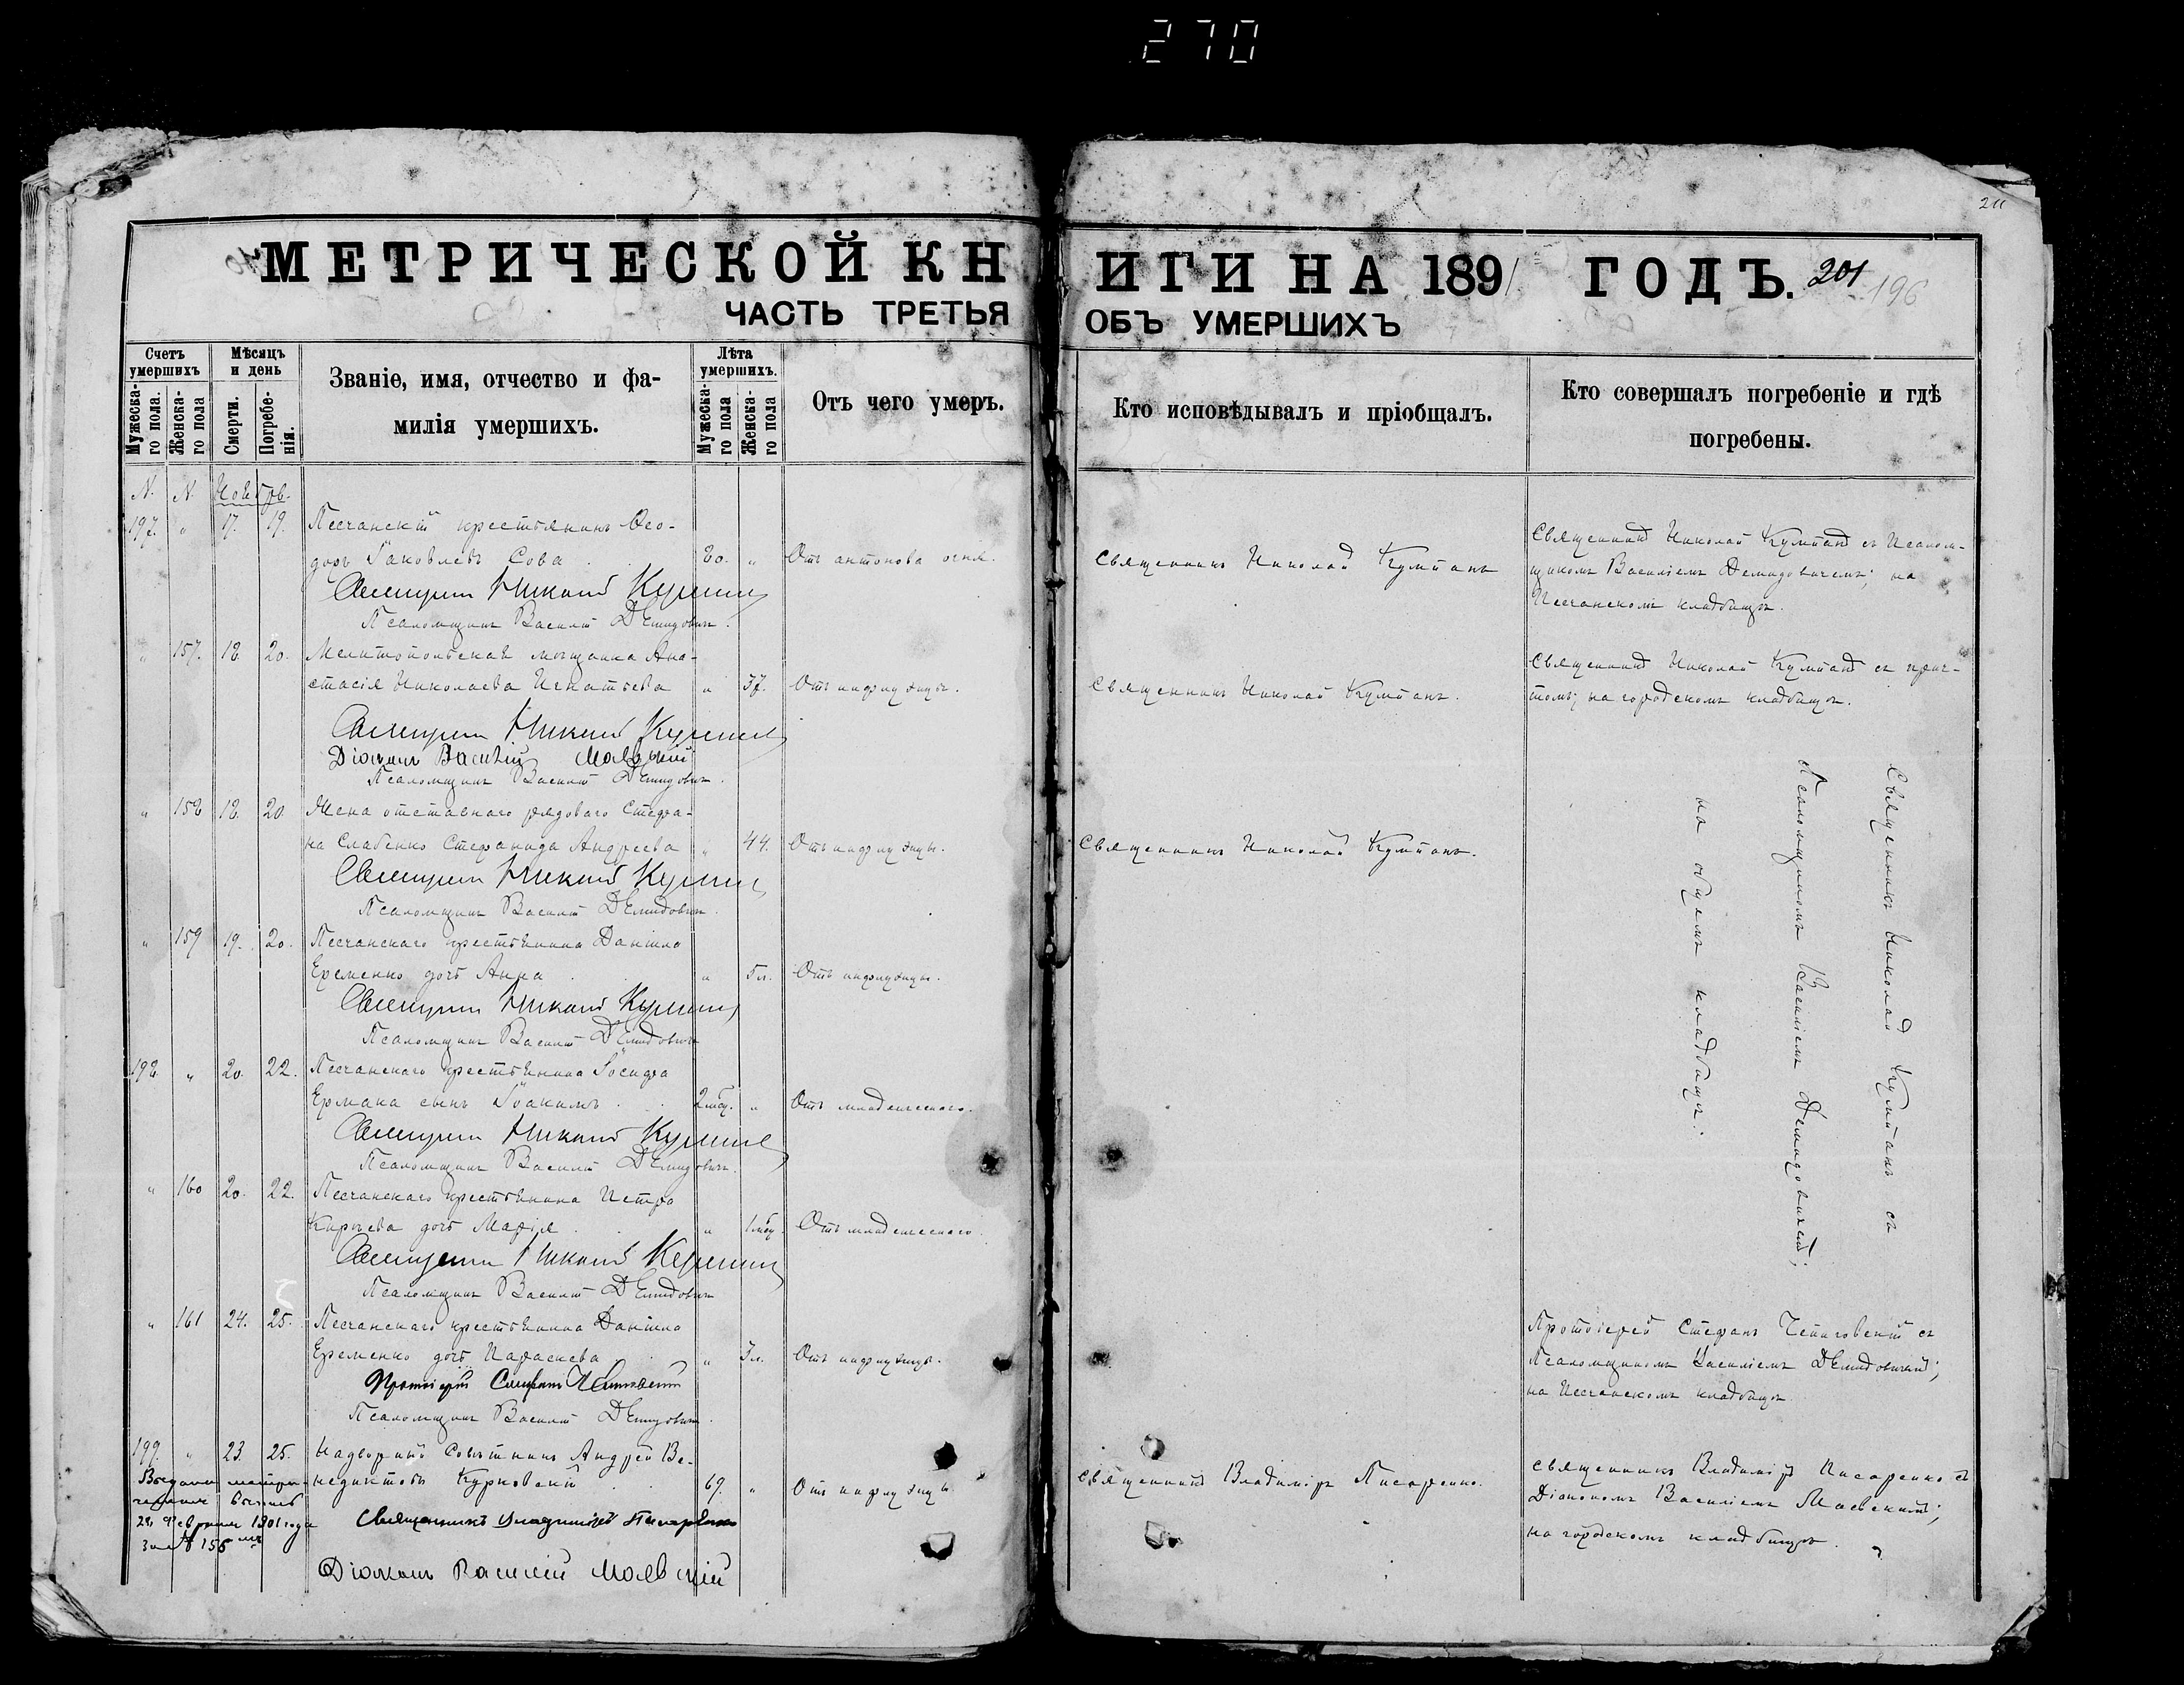 270
211
МЕТРИЧЕСКОЙ КНИГИ НА 1891 ГОДЪ. 201 196
ЧАСТЬ ТРЕТЬЯ ОБЪ УМЕРШИХЪ
Счетъ умершихъ
Мужеска-го пола.
Женска-го пола
Мѣсяцъ и день
Смерти.
Погребе-нія.
Званіе, имя, отчество и фа-
милія умершихъ.
Лѣта умершихъ.
Мужеска-го пола
Женска-го пола
Отъ чего умеръ.
Кто исповѣдывалъ и пріобщалъ.
Кто совершалъ погребеніе и гдѣ
погребены.
N. N. Ноябрь.
197. " 17. 19. Песчанскій крестьянинъ Ѳео-
доръ Іаковлевъ Сова 80. " Отъ антонова огня. Священникъ Николай Кумпанъ
Священникъ Николай Кумпанъ съ Псалом-
щикомъ Василіемъ Демидовичемъ; на
Песчанскомъ кладбищѣ.
Священникъ Николай Кумпанъ
Псаломщикъ Василій Демидовичъ.
" 157. 18. 20. Мелитопольская мѣщанка Ана-
стасія Николаева Игнатьева " 37. Отъ инфлуэнцы. Священникъ Николай Кумпанъ.
Священникъ Николай Кумпанъ съ прич-
томъ; на городскомъ кладбищѣ.
Священникъ Николай Кумпанъ
Діаконъ Василій Маевскій
Псаломщикъ Василій Демидовичъ.
" 158 18. 20. Жена отставнаго рядоваго Стефа-
на Слабенко Стефанида Андреева " 44. Отъ инфлуэнцы. Священникъ Николай Кумпанъ.
Священникъ Николай Кумпанъ
Псаломщикъ Василій Демидовичъ.
" 159 19. 20. Песчанскаго крестьянина Даніила
Еременко дочь Анна " 5л. Отъ инфлуэнцы.
Священникъ Николай Кумпанъ
Псаломщикъ Василій Демидовичъ
198. " 20. 22. Песчанскаго крестьянина Іосифа
Ермака сынъ Іоакимъ 2мѣс. " Отъ младенческаго.
Священникъ Николай Кумпанъ
Псаломщикъ Василій Демидовичъ.
" 160 20. 22. Песчанскаго крестьянина Петра
дочь Марія " 1мѣс. Отъ младенческаго.
Священникъ Николай Кумпанъ
Псаломщикъ Василій Демидовичъ
Священникъ Николай Кумпанъ съ
Псаломщикомъ Василіемъ Демидовичемъ;
на общемъ кладбищѣ.
" 161 24. 25. Песчанскаго крестьянина Даніила
Еременко дочь Параскева " 3л. Отъ инфлуэнцы.
Протоіерей Стефанъ
Псаломщикъ Василій Демидовичъ.
Протоіерей Стефанъ съ
Псаломщикомъ Василіемъ Демидовичемъ;
на Песчанскомъ кладбищѣ
199. " 23. 25. Надворный Совѣтникъ Андрей Ве-
недиктовъ Курковскій 69. " Отъ инфлуэнцы Священникъ Владиміръ Писаренко.
Священникъ Владиміръ Писаренко съ
Діакономъ Василіемъ Маевскимъ;
на городскомъ кладбищѣ.
Священникъ Владиміръ Писаренко
Діаконъ Василій Маевскій
Выдана метри-
ческая выпись
24 Февраля 1901 года
за № 156